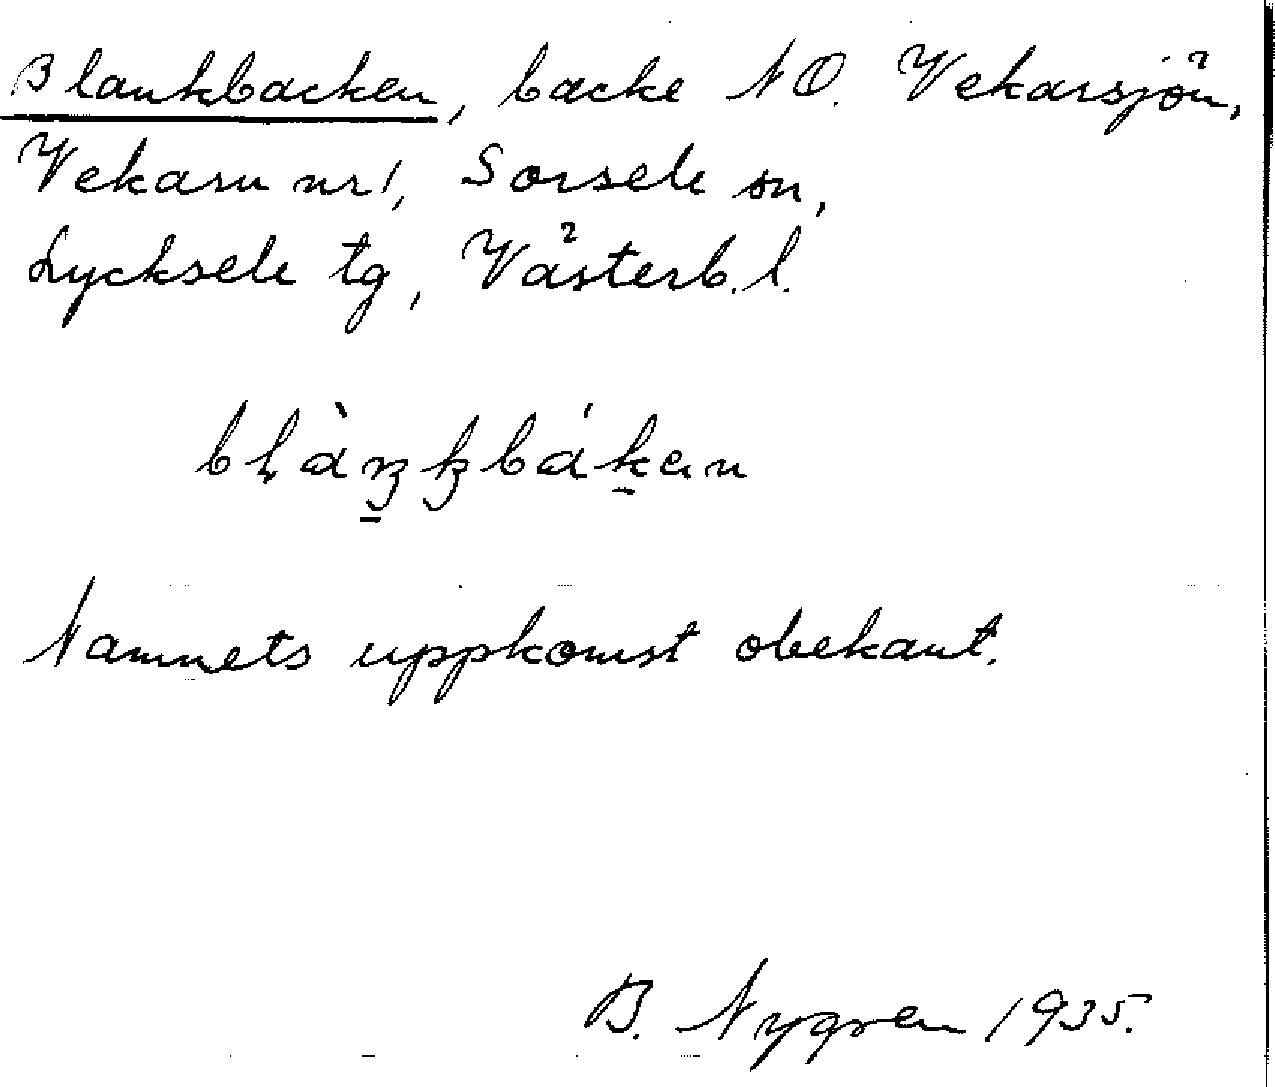 Blankbacken, backe NO. Vekarsjön,
Vekarn nr 1, Sorsele sn,
Lycksele tg, Västerb. l.
Namnets uppkomst obekant.
B. Nygren 1935.